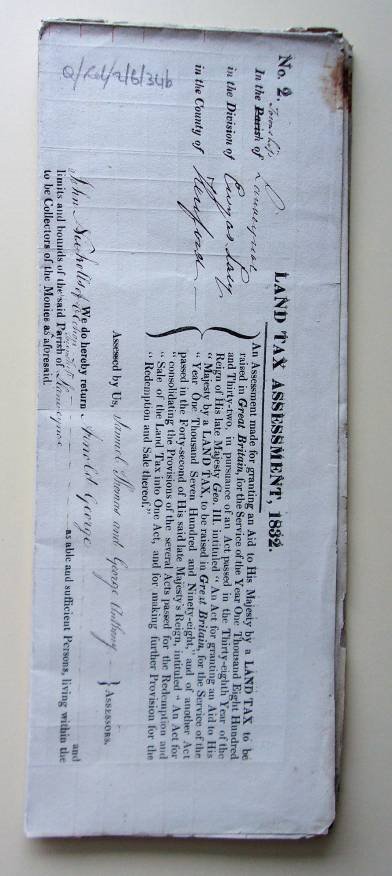 Q/Rel/2/6/34b
No. 2.
LAND TAX ASSESSMENT, 1832.
Township
In the Parish of Lancequor
in the Division of Ewyas Lacy
in the County of Hereford
An Assessment made for granting an Aid to His Majesty by a LAND TAX to be
raised in Great Britain, for the Service of the Year One Thousand Eight Hundred
and Thirty-two, in pursuance of an Act passed in the Thirty-eighth Year of the
Reign of His late Majesty Geo. III. intituled "An Act for granting an Aid to His
"Majesty by a LAND TAX, to be raised in Great Britain, for the Service of the
"Year One Thousand Seven Hundred and Ninety-eight," and of another Act
passed in the Forty-second of His said late Majesty's Reign, intituled "An Act for
"consolidating the Provisions of the several Acts passed for the Redemption and
"Sale of the Land Tax into One Act, and for making further Provision for the
"Redemption and Sale thereof."
Assessed by Us, Samuel Thomas and George Anthony } ASSESSORS.
We do hereby return Arnold George and
John Nicholls of as able and sufficient Persons, living within the
limits and bounds of the said Parish of
to be Collectors of the Monies as aforesaid.